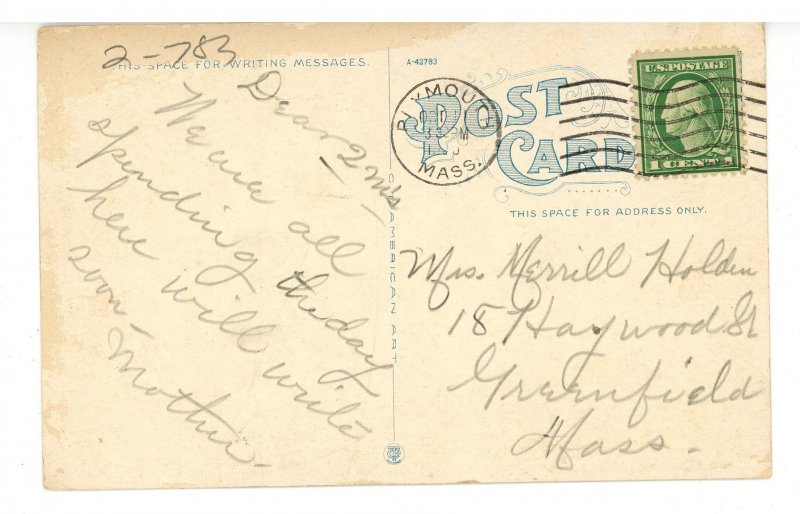 2-783
THIS SPACE FOR WRITING MESSAGES.
A-42783
Dear 2 M's
We are all
spending the day
here will write
soon-
Mother-
C.T. AMERICAN ART
POST CARD
THIS SPACE FOR ADDRESS ONLY.
PLYMOUTH
PM
MASS.
U.S. POSTAGE
1 CENT 1
Mrs. Merrill Holden
18 Haywood St
Greenfield
Mass.